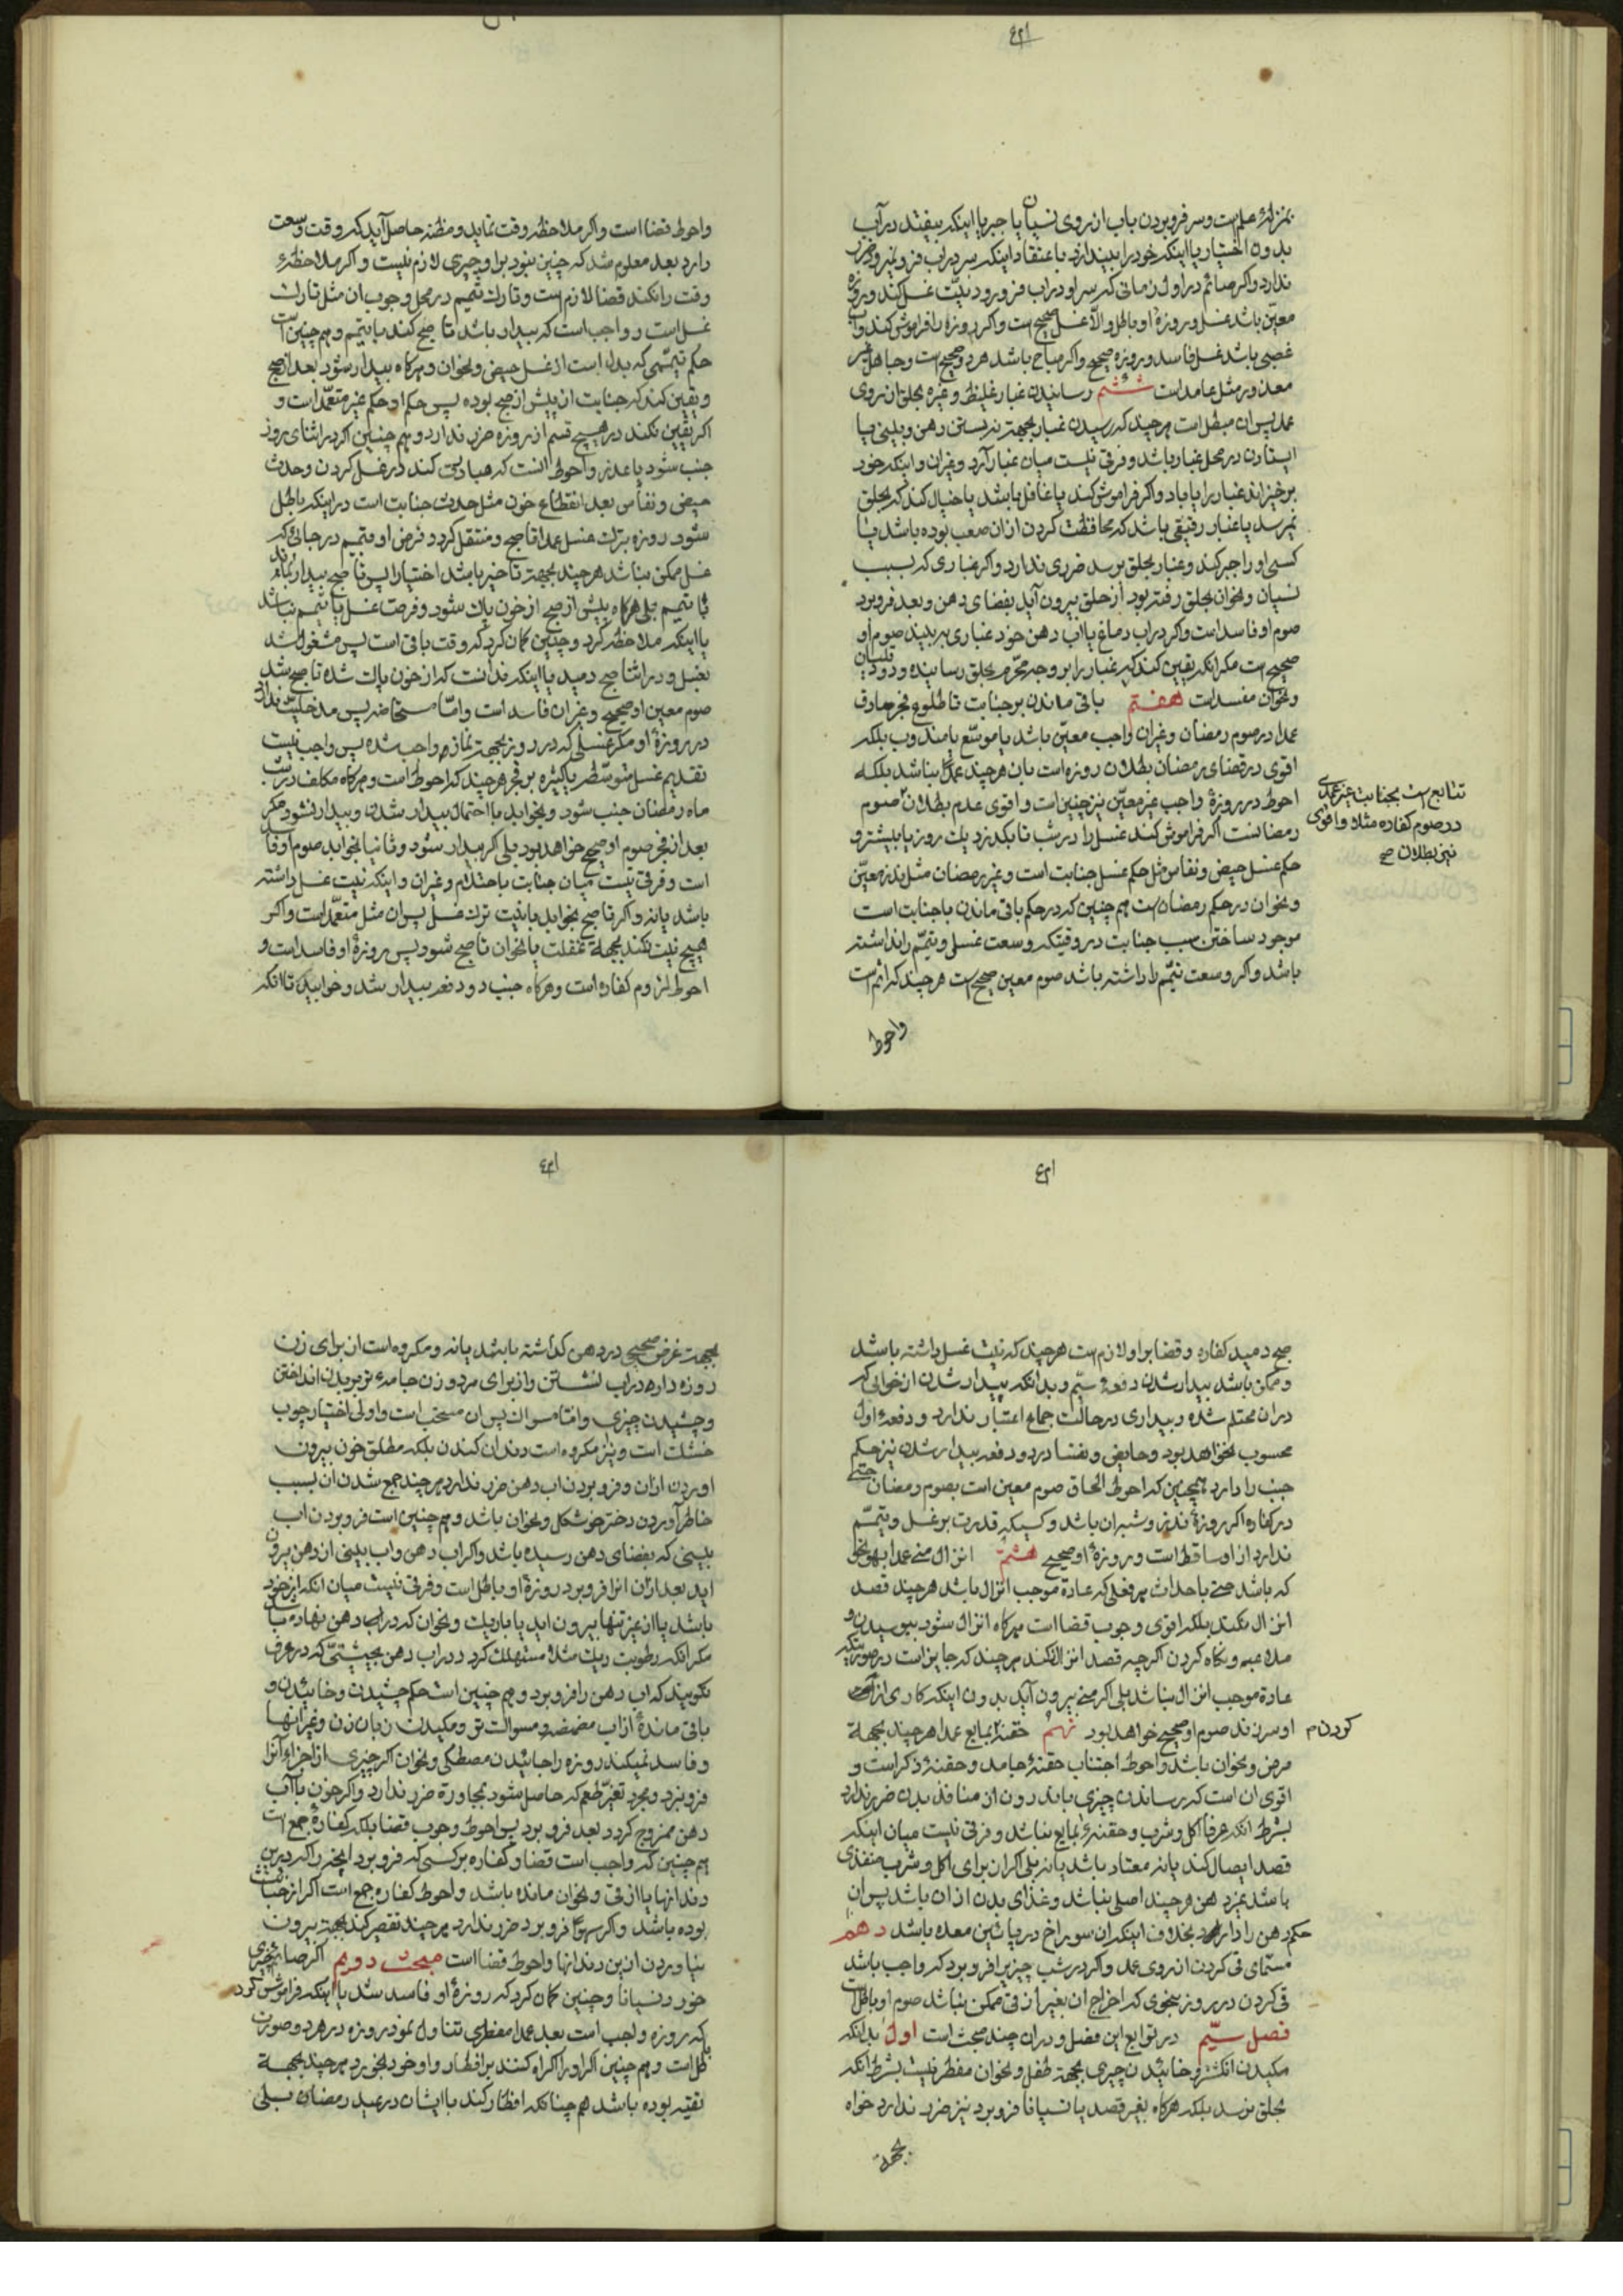 بمنزلهٔ علم است و سر فرو بردن باب از روی نسیان یا جبر یا اینکه بیفتد در آب
بدون اختیار یا اینکه خود را بیندازد باعتقاد اینکه سر در اب فرو نمیرود ضرر
ندارد و اکر صائم در اول زمانی که سر او در اب فرو رود نیّت غسل کند و روزه
معیّن باشد غسل و روزهٔ او باطل و الّا غسل صحیح است و اکر روزه را فراموش کند و اب
غصبی باشد غسل فاسد و روزه صحیح و اکر مباح باشد هر دو صحیح است و جاهل غیر
معذور مثل عامد است ششم رسانیدن غبار غلیظ و غیره بحلق از روی
عمد پس ان مبطل است هر چند که رسیدن غبار بجهت نه بستن دهن و بینی یا
ایستادن در محل غبار باشد و فرقی نیست میان غبار آرد و غیر ان و اینکه خود
برخیزاند غبار را یا باد و اکر فراموش کند یا غافل باشد یا خیال کند که بحلق
نمیرسد یا غبار رقیقی باشد که محافظت کردن از ان صعب بوده باشد یا
کسی او را جبر کند و غبار بحلق برسد ضرری ندارد و اکر غباری که بسبب
نسیان و نحو ان بحلق رفته بود از حلق بیرون آید بفضای دهن و بعد فرو برد
صوم او فاسد است و اکر در اب دماغ یا اب دهن خود غباری به بیند صوم او
صحیح است مکر انکه یقین کند که غبار را بر وجه محرّم بحلق رسانیده و دود قلیان
و نحو ان مفسد است هفتم باقی ماندن بر جنابت تا طلوع فجر صادق
عمدا در صوم رمضان و غیر ان واجب معیّن باشد یا موسّع یا مندوب بلکه
اقوی در قضای رمضان بطلان روزه است بان هر چند عمدا نباشد بلکه
احوط در روزهٔ واجب غیر معیّن نیز چنین است و اقوی عدم بطلان صوم
تتابع است بجنابت غیر عمدی
در صوم کفاره مثلا و اقوی
نیز بطلان صح
رمضانست اکر فراموش کند غسل را در شب تا بکذرد یک روز یا بیشتر و
حکم غسل حیض و نفاس مثل حکم غسل جنابت است و غیر رمضان مثل نذر معیّن
و نحو ان در حکم رمضان است هم چنین که در حکم باقی ماندن با جنابت است
موجود ساختن سبب جنابت در وقتیکه وسعت غسل و تیمّم را نداشته
باشد و اکر وسعت تیمّم را داشته باشد صوم معین صحیح است هر چند که اثم است
واحوط
واحوط قضا است و اکر ملاحظهٔ وقت نماید و مظنه حاصل آید که وقت وسعت
دارد بعد معلوم شد که چنین نبود بر او چیزی لازم نیست و اکر ملاحظهٔ
وقت را نکند قضا لازم است و تارک تیمم در محل وجوب ان مثل تارک
غسل است و واجب است که بیدار باشد تا صبح کند با تیمم و هم چنین است
حکم تیمّمی که بدل است از غسل حیض و نحو ان و هر کاه بیدار شود بعد از صبح
و یقین کند که جنابت از پیش از صبح بوده پس حکم او حکم غیر متعمّد است و
اکر یقین نکند در هیچ قسم از روزه ضرر ندارد و هم چنین اکر در اثنای روز
جنب شود با عذر و احوط انست که مبادرت کند در غسل کردن و حدث
حیض و نفاس بعد انقطاع خون مثل حدث جنابت است در اینکه باطل
شود روزه بترک غسل عمدا تا صبح و منتقل کردد فرض او بتیمم در جائی که
غسل ممکن نباشد هر چند بجهت تاخیر باشد اختیارا پس تا صبح بیدار بماند
با تیمم بلی هر کاه پیش از صبح از خون پاک شود و فرصت غسل یا تیمم نباشد
یا اینکه ملاحظه کرد و چنین کمان کرد که وقت باقی است پس مشغول شد
بغسل و در اثنا صبح دمید یا اینکه ندانست که از خون پاک شده تا صبح شد
صوم معین او صحیح و غیر ان فاسد است و امّا مستحاضه پس مدخلیّت ندارد
در روزهٔ او مکر غسلی که در روز بجهت نماز بر او واجب شده پس واجب نیست
تقدیم غسل متوسّطه یا کثیره بر فجر هر چند که احوط است و هر کاه مکلف در شب
ماه رمضان جنب شود و بخوابد با احتمال بیدار شدن و بیدار نشود مکر
بعد از فجر صوم او صحیح خواهد بود بلی اکر بیدار شود و ثانیا بخوابد صوم او فاسد
است و فرقی نیست میان جنابت باحتلام و غیر ان و اینکه نیت غسل داشته
باشد یا نه و اکر تا صبح بخوابد با نیت ترک غسل پس ان مثل متعمّد است و اکر
هیچ نیت نکند بجههٔ غفلت یا نحو ان تا صبح شود پس روزهٔ او فاسد است و
احوط لزوم کفاره است و هر کاه جنب دو دفعه بیدار شد و خوابید تا انکه
صبح دمید کفاره و قضا بر او لازم است هر چند که نیت غسل داشته باشد
و ممکن باشد بیدار شدن دفعهٔ سیّم و بدانکه بیدار شدن از خوابی که
در ان محتلم شده و بیداری در حالت جماع اعتبار ندارد و دفعهٔ اول
محسوب نخواهد بود و حایض و نفسا در دو دفعه بیدار شدن نیز حکم
جنب را دارد همچنین که احوط الحاق صوم معین است بصوم رمضان حتی
در کفاره اکر روزهٔ نذر و شبه ان باشد و کسیکه قدرت بر غسل و تیمّم
ندارد از او ساقط است و روزهٔ او صحیح هشتم انزال منی عمدا بهر نحو
که باشد حتی باحداث هر فعلی که عادة موجب انزال باشد هر چند قصد
انزال نکند بلکه اقوی وجوب قضا است هر کاه انزال شود ببوسیدن و
ملاعبه و نکاه کردن اکر چه قصد انزال نکند هر چند که جایز است در صورتیکه
عادة موجب انزال نباشد بلی اکر منی بیرون آید بدون اینکه کاری از
او سر زند صوم او صحیح خواهد بود نهم حقنه بمایع عمدا هر چند بجههٔ
کردن م
مرض و نحو ان باشد و احوط اجتناب حقنهٔ جامد و حقنهٔ ذکر است و
اقوی ان است که رساندن چیزی باندرون از منافذ بدن ضرر ندارد
بشرط انکه عرفا اکل و شرب و حقنهٔ بمایع نباشد و فرقی نیست میان اینکه
قصد ایصال کند یا نه معتاد باشد یا نه بلی اکر ان برای اکل و شرب منفذی
باشد بمنزلهٔ دهن هر چند اصلی نباشد و غذای بدن از ان باشد پس ان
حکم دهن را دارد بخلاف اینکه ان سوراخ در پائین معده باشد دهم
مسمّای قی کردن از روی عمد و اکر در شب چیزیرا فرو برد که واجب باشد
قی کردن در روز بنحوی که اخراج ان بغیر از قی ممکن نباشد صوم او باطل است
فصل سیّم در توابع این فصل و در ان چند مبحث است اول بدانکه
مکیدن انکشتر و خائیدن چیزی بجههٔ طفل و نحو ان مفطر نیست بشرط انکه
بحلق نرسد بلکه هر کاه بغیر قصد یا نسیانا فرو برد نیز ضرر ندارد خواه
بجهة
بجهت غرض صحیحی در دهن کذاشته باشد یا نه و مکروه است از برای زن
روزه دار در اب نشستن و از برای مرد و زن جامهٔ تر بر بدن انداختن
و چشیدن چیزی و امّا مسواک پس ان مستحب است و اولی اختیار چوب
خشک است و نیز مکروه است دندان کندن بلکه مطلق خون بیرون
اوردن از ان و فرو بردن اب دهن ضرر ندارد هر چند جمع شدن ان بسبب
خاطر آوردن دختر خوشکل و نحو ان باشد و هم چنین است فرو بردن اب
بینی که بفضای دهن رسیده باشد و اکر اب دهن و اب بینی از دهن بیرون
اید بعد از ان انرا فرو برد روزهٔ او باطل است و فرقی نیست میان انکه از خود
باشد یا از غیر تنها بیرون اید یا با ریک و نحو ان که در اب دهن نهاده باشد
مکر انکه رطوبت ریک مثلا مستهلک کردد در اب دهن بحیثیّتی که در عرف
نکویند که اب دهن را فرو برد و هم چنین است حکم چشیدن و خائیدن و
باقی ماندهٔ از اب مضمضه و مسواک تر و مکیدن زبان زن و غیر انها
و فاسد نمیکند روزه را خائیدن مصطکی و نحو ان اکر چیزی از اجزاء آنرا
فرو نبرد و مجرد تغیّر طعم که حاصل شود بمجاورة ضرر ندارد و اکر خون با آب
دهن ممزوج کردد بعد فرو برد پس احوط وجوب قضا بلکه کفارهٔ جمع است
هم چنین که واجب است قضا و کفاره بر کسی که فرو برد انچه را که در بین
دندانها یا از قی و نحو ان مانده باشد و احوط کفارهٔ جمع است اکر از خبائث
بوده باشد و اکر سهوا فرو برد ضرر ندارد هر چند تقصیر کند بجهت بیرون
نیاوردن از بن دندانها و احوط قضا است مبحث دویم اکر صائم چیزی
خورد نسیانا و چنین کمان کرد که روزهٔ او فاسد شد یا اینکه فراموش کرد
که روزه واجب است بعد عمدا مفطری تناول نمود روزه در هر دو صورت
باطل است و هم چنین اکر او را اکراه کنند بر افطار و او خود بخورد هر چند بجههٔ
تقیه بوده باشد هم چنانکه افطار کند با ایشان در عید رمضان بلی